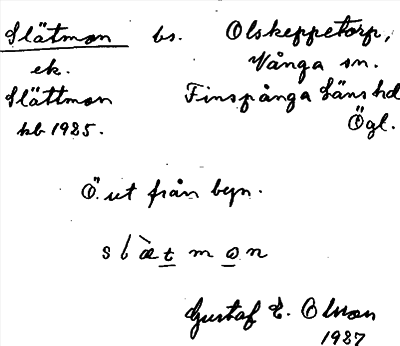 Slätmon bs. Olskeppetorp,
ek. Vånga sn.
Slättmon Finspånga läns hd
kb 1925. Ögl.
Ö. ut från byn.
Gustaf E. Olsson
1927